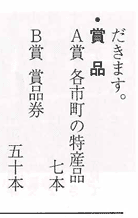 だきます。
・賞品
A賞 各市町の特産品
七本
B賞 賞品券
五十本